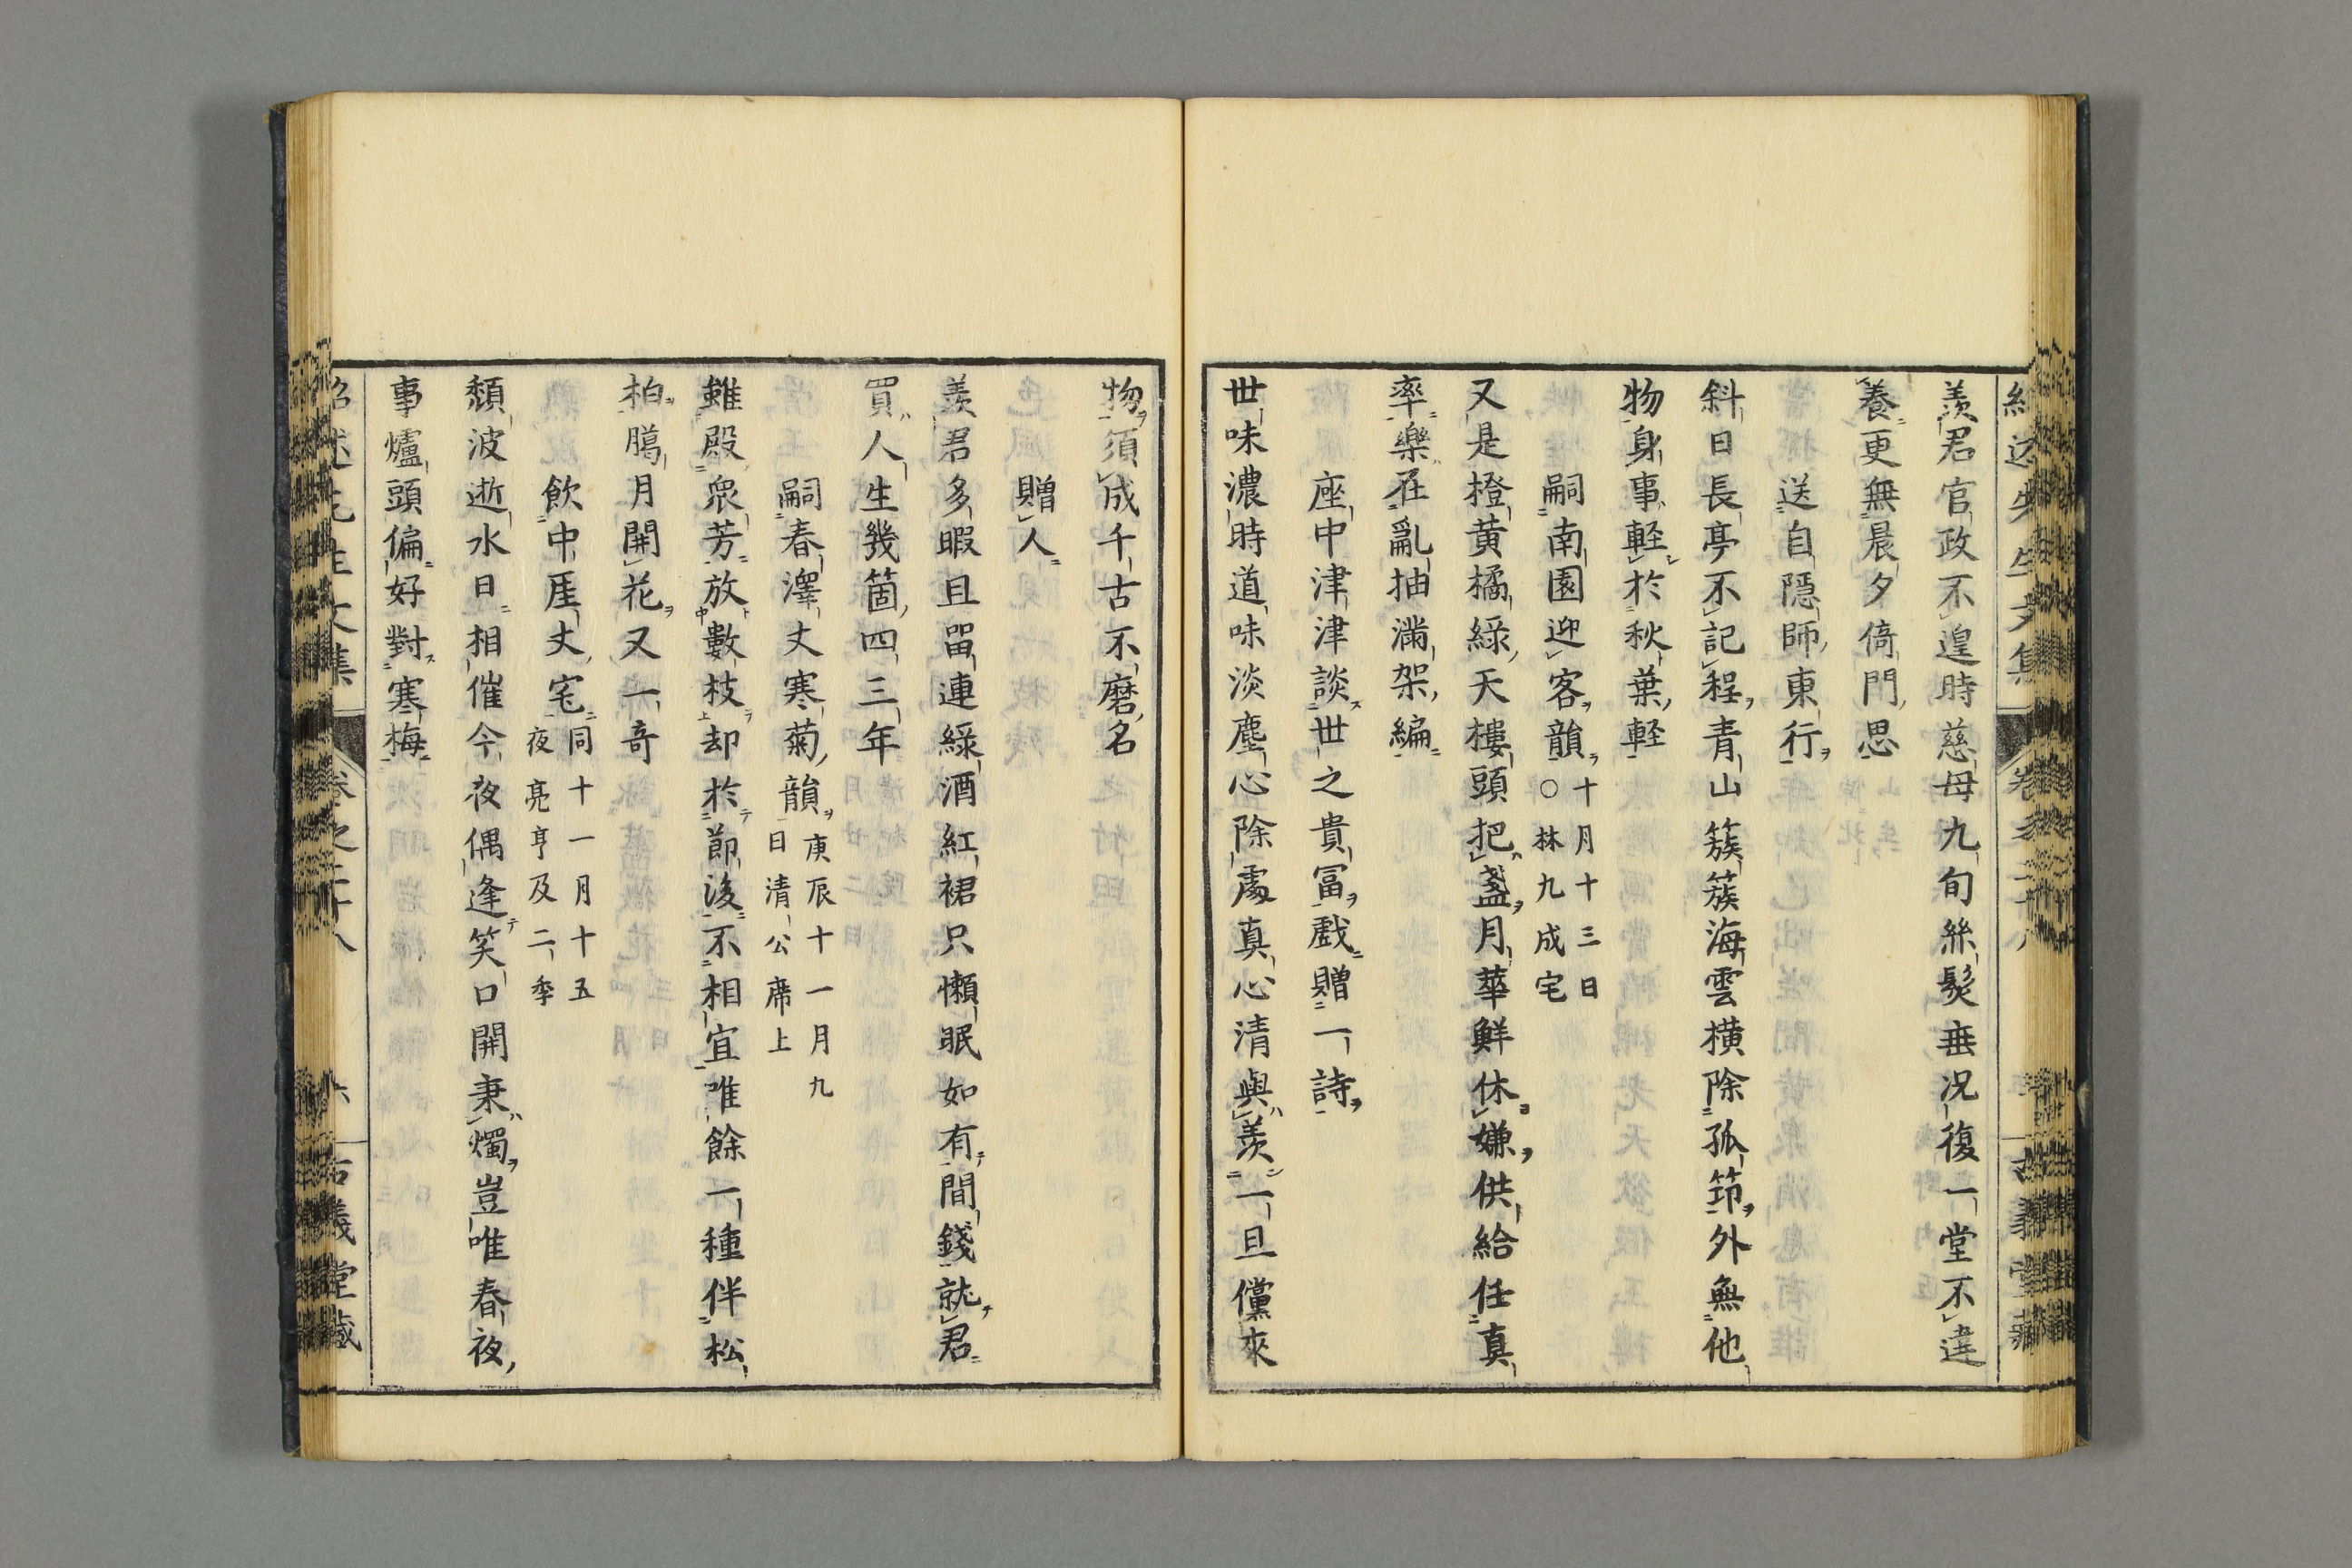 羨君官政不遑時慈母九旬絲髮垂况復一堂不違
養更無晨夕倚門思
送自隱師東行
斜日長亭不記程青山簇簇海雲橫除孤筇外無他
物身事軽於秋葉軽
嗣南園迎客韻十月十三日
○林九成宅
又是橙黄橘綠天樓頭把盞月華鮮休嫌供給任真
率樂在亂抽滿架編
座中津津談世之貴冨戲贈一詩
世味濃時道味淡塵心除處真心清與羨一旦儻來
物須成千古不磨名
贈人
羨君多暇且畱連綠酒紅裙只懶眠如有間錢就君
買人生幾箇四三年
嗣春澤丈寒菊韻庚辰十一月九
日清公席上
雖殿衆芳放數枝却於節後不相宜唯餘一種伴松
柏臈月開花又一竒
飲中厓丈宅同十一月十五
夜亮亨及二季
頽波逝水日相催今夜偶逢笑口開秉燭豈唯春夜
事爐頭偏好對寒梅
紹述先生文集 卷之二十八 古義堂藏